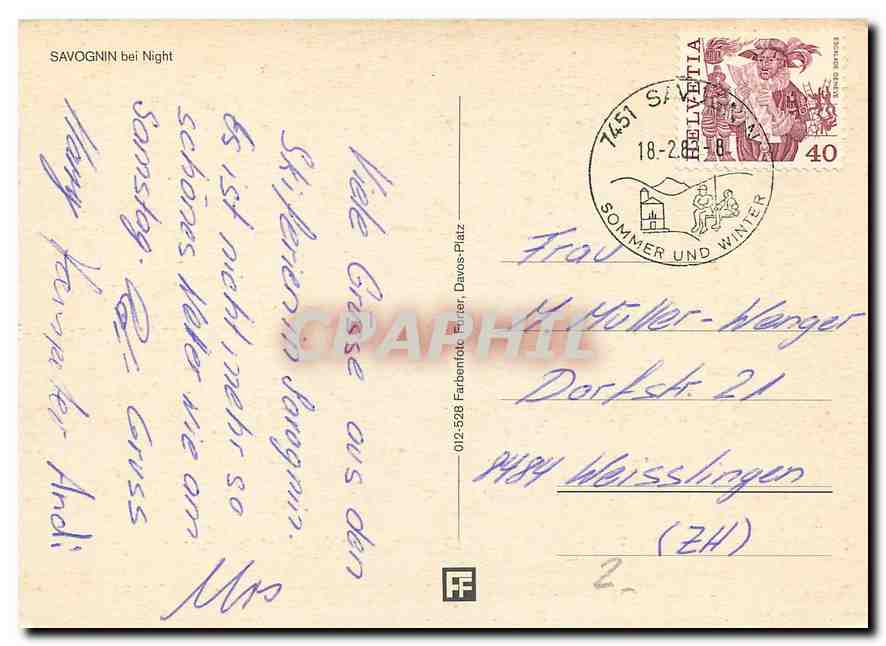 SAVOGNIN bei Night
Viele Grüsse aus den
Skiferien in Savognin.
Es ist nicht mehr so
schönes Wetter wie am
Samstag. Gruss
Hanspeter Andi
Urs
012-528 Farbenfoto Furter, Davos-Platz
FF
HELVETIA
ESCALADE GENEVE
40
7451 SAVOGNIN
18.-2.8 -8
SOMMER UND WINTER
Frau
M. Müller-Wenger
Dorfstr. 21
8484 Weisslingen
(ZH)
2.-
CPAPHIL